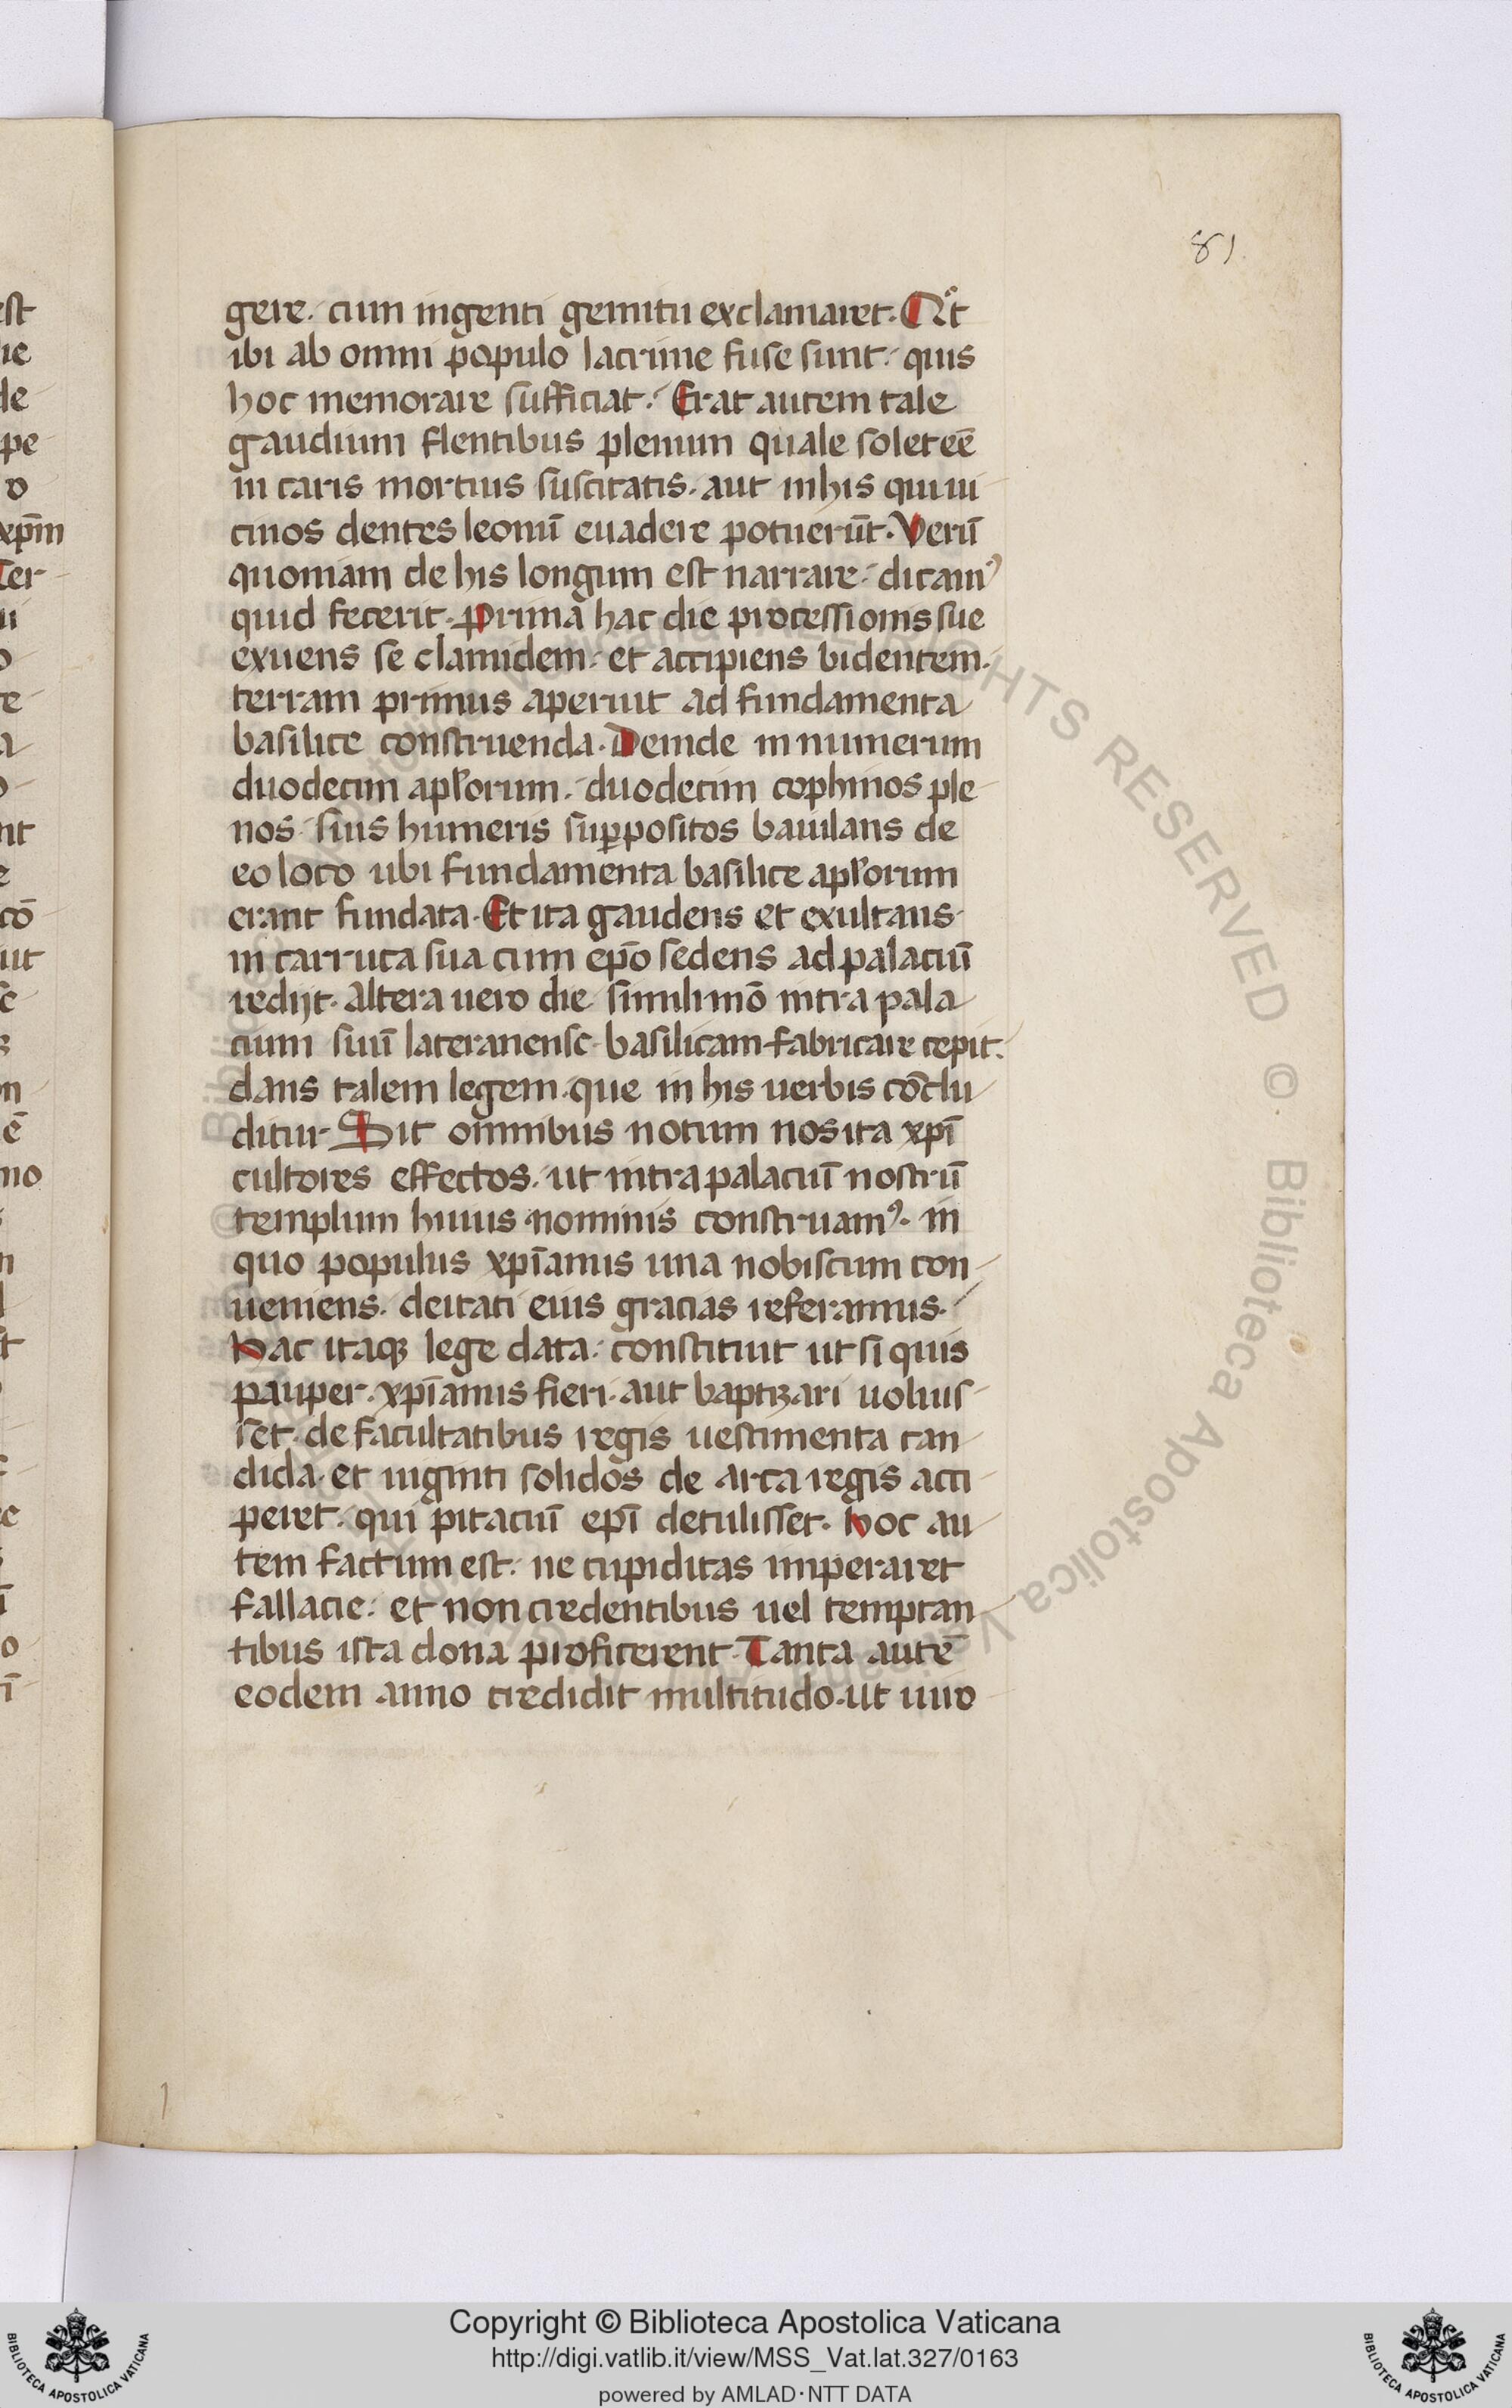 81.
gere. cum ingenti gemitu exclamaret. Qͦt
ibi ab omni populo lacrime fuse sunt. quis
hoc memorare sufficiat. Erat autem tale
gaudium flentibus plenum quale solet eē
in caris mortuis suscitatis. aut in his qui ui
cinos dentes leonū euadere potuerūt. Verū
quoniam de his longum est narrare. dicamꝰ
quid fecerit. Prima hac die processionis sue
exuens se clamidem. et accipiens bidentem.
terram primus aperuit ad fundamenta
basilice construenda. Deinde in numerum
duodecim apl'orum. duodecim cophinos ple
nos suis humeris suppositos baiulans de
eo loco ubi fundamenta basilice apl'orum
erant fundata. Et ita gaudens et exultans
in carruca sua cum ep̄o sedens ad palaciū
redijt. Altera uero die simili mō intra pala
cium suū lateranense basilicam fabricare cepit.
dans talem legem. que in his uerbis cōclu
ditur. Sit omnibus notum nos ita xp̄i
cultores effectos. ut intra palaciū nostrū
templum huius nominis construamꝰ. in
quo populus xp̄ianus una nobiscum con
ueniens. deitati eius gracias referamus.
Hac itaqꝫ lege data. constituit ut si quis
pauper. xp̄ianus fieri. aut baptizari uoluis
set. de facultatibus regis uestimenta can
dida. et uiginti solidos de arca regis acci
peret. qui pitaciū ep̄i detulisset. Hoc au
tem factum est. ne cupiditas imperaret
fallacie. et non credentibus uel temptan
tibus ista dona proficerent. Tanta autē
eodem anno credidit multitudo. ut uiro
Copyright © Biblioteca Apostolica Vaticana
http://digi.vatlib.it/view/MSS_Vat.lat.327/0163
powered by AMLAD·NTT DATA